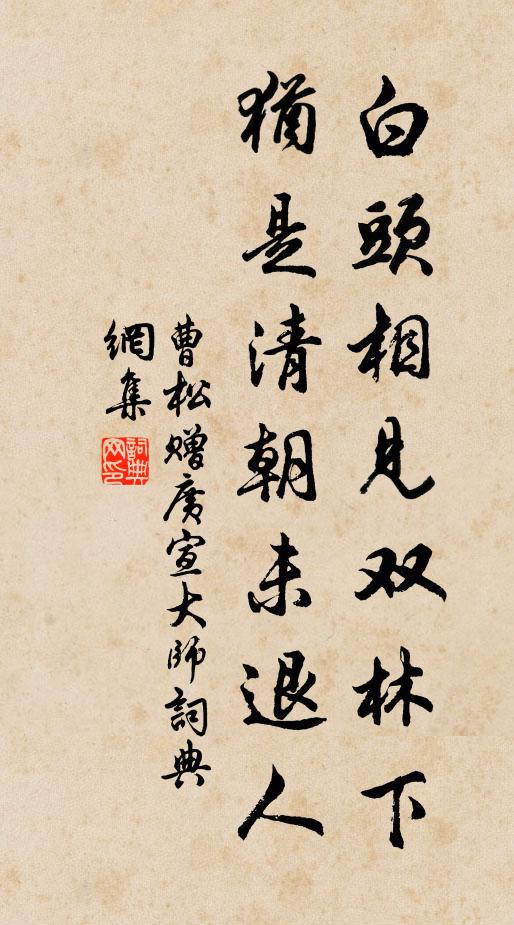 白頭相見双林下
猶是清朝未退人
曹松贈广宣大師詞典
網集
詞典
网印